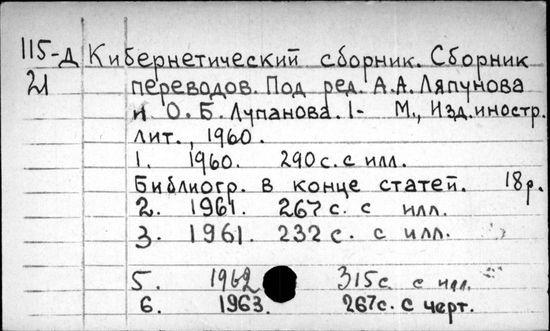 115-д Кибернетический сборник. Сборник
21 переводов. Под ред. А.А. Ляпунова
и О.Б. Лупанова. 1- М., Изд. иностр.
лит., 1960.
1. 1960. 290 с. с илл.
Библиогр. в конце статей. 18 р.
2. 1961. 267 с. с илл.
3. 1961. 232 с. с илл.
5. 1962 315 с с илл.
6. 1963. 267 с. с черт.